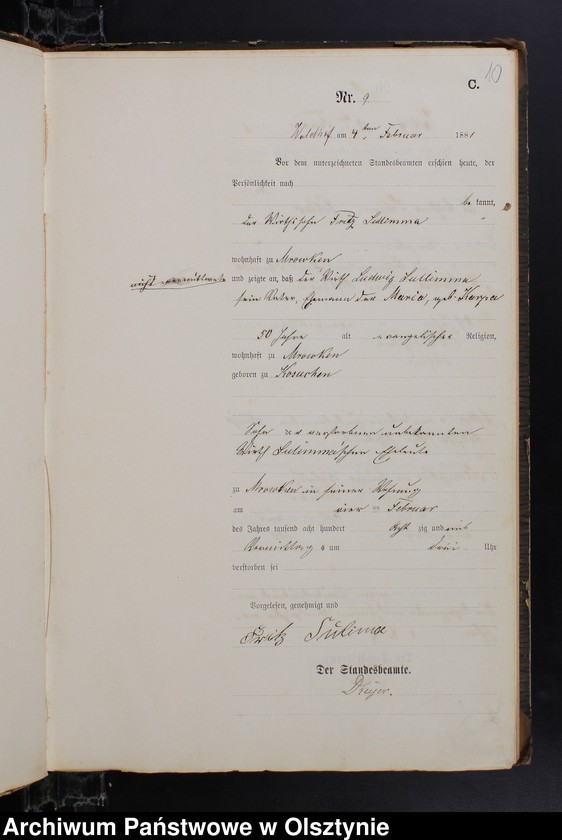 10
C.
Nr. 9
Waldhof am 4ten Februar 1881
Vor dem unterzeichneten Standesbeamten erschien heute, der
Persönlichkeit nach
be kannt,
der Wirthssohn Fritz Sullimma
wohnhaft zu Mrowken
und zeigte an, daß der Wirth Ludwig Sullimma
sein Vater, Ehemann der Maria, geb. Karpa
50 Jahre alt evangelischer Religion,
wohnhaft zu Mrowken
geboren zu Kosuchen
Sohn der verstorbenen unbekannten
Wirth Sulimma'schen Eheleute
zu Mrowken in seiner Wohnung
am vier Februar
des Jahres tausend acht hundert acht zig und eins
Vormittags um drei Uhr
verstorben sei
Vorgelesen, genehmigt und
Fritz Sulima
Der Standesbeamte.
Archiwum Państwowe w Olsztynie